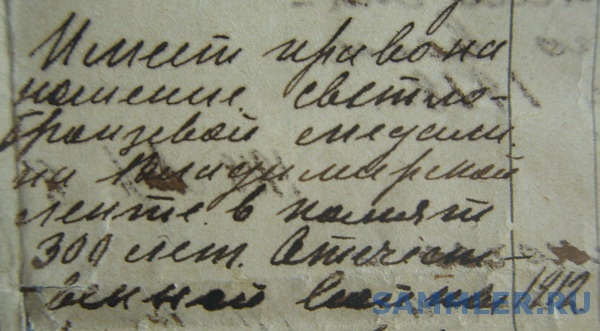 Имеет право на
ношение светло-
бронзевой медали
на Владимирской
ленте в памят
300 лет. Отечест-
венной войны 1912
SAMMLER.RU